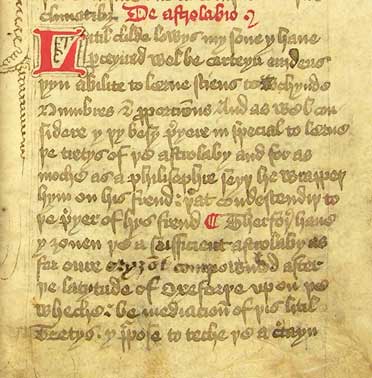 De astrolabio
Lytil childe lowys my sone y haue
pceyued wel be certeyn
þyn abilite to lerne sciens towchynde
Numbres & pporcions And as wel con
sidere y þy besy pyere in special to lerne
þe tretys of þe astrolaby and for as
moche as a philisophir seyþ he wrappeþ
hym on his frend: þat condescendiþ to
þe pyer of hys frend ¶ Therfor haue
y ȝouen þe a sufficient astrolaby as
for oure compowned after
þe latitude of Oxeforþe upon þe
wheche: be mediacion of þis litil
tretys: y ppose to teche þe a ctayn